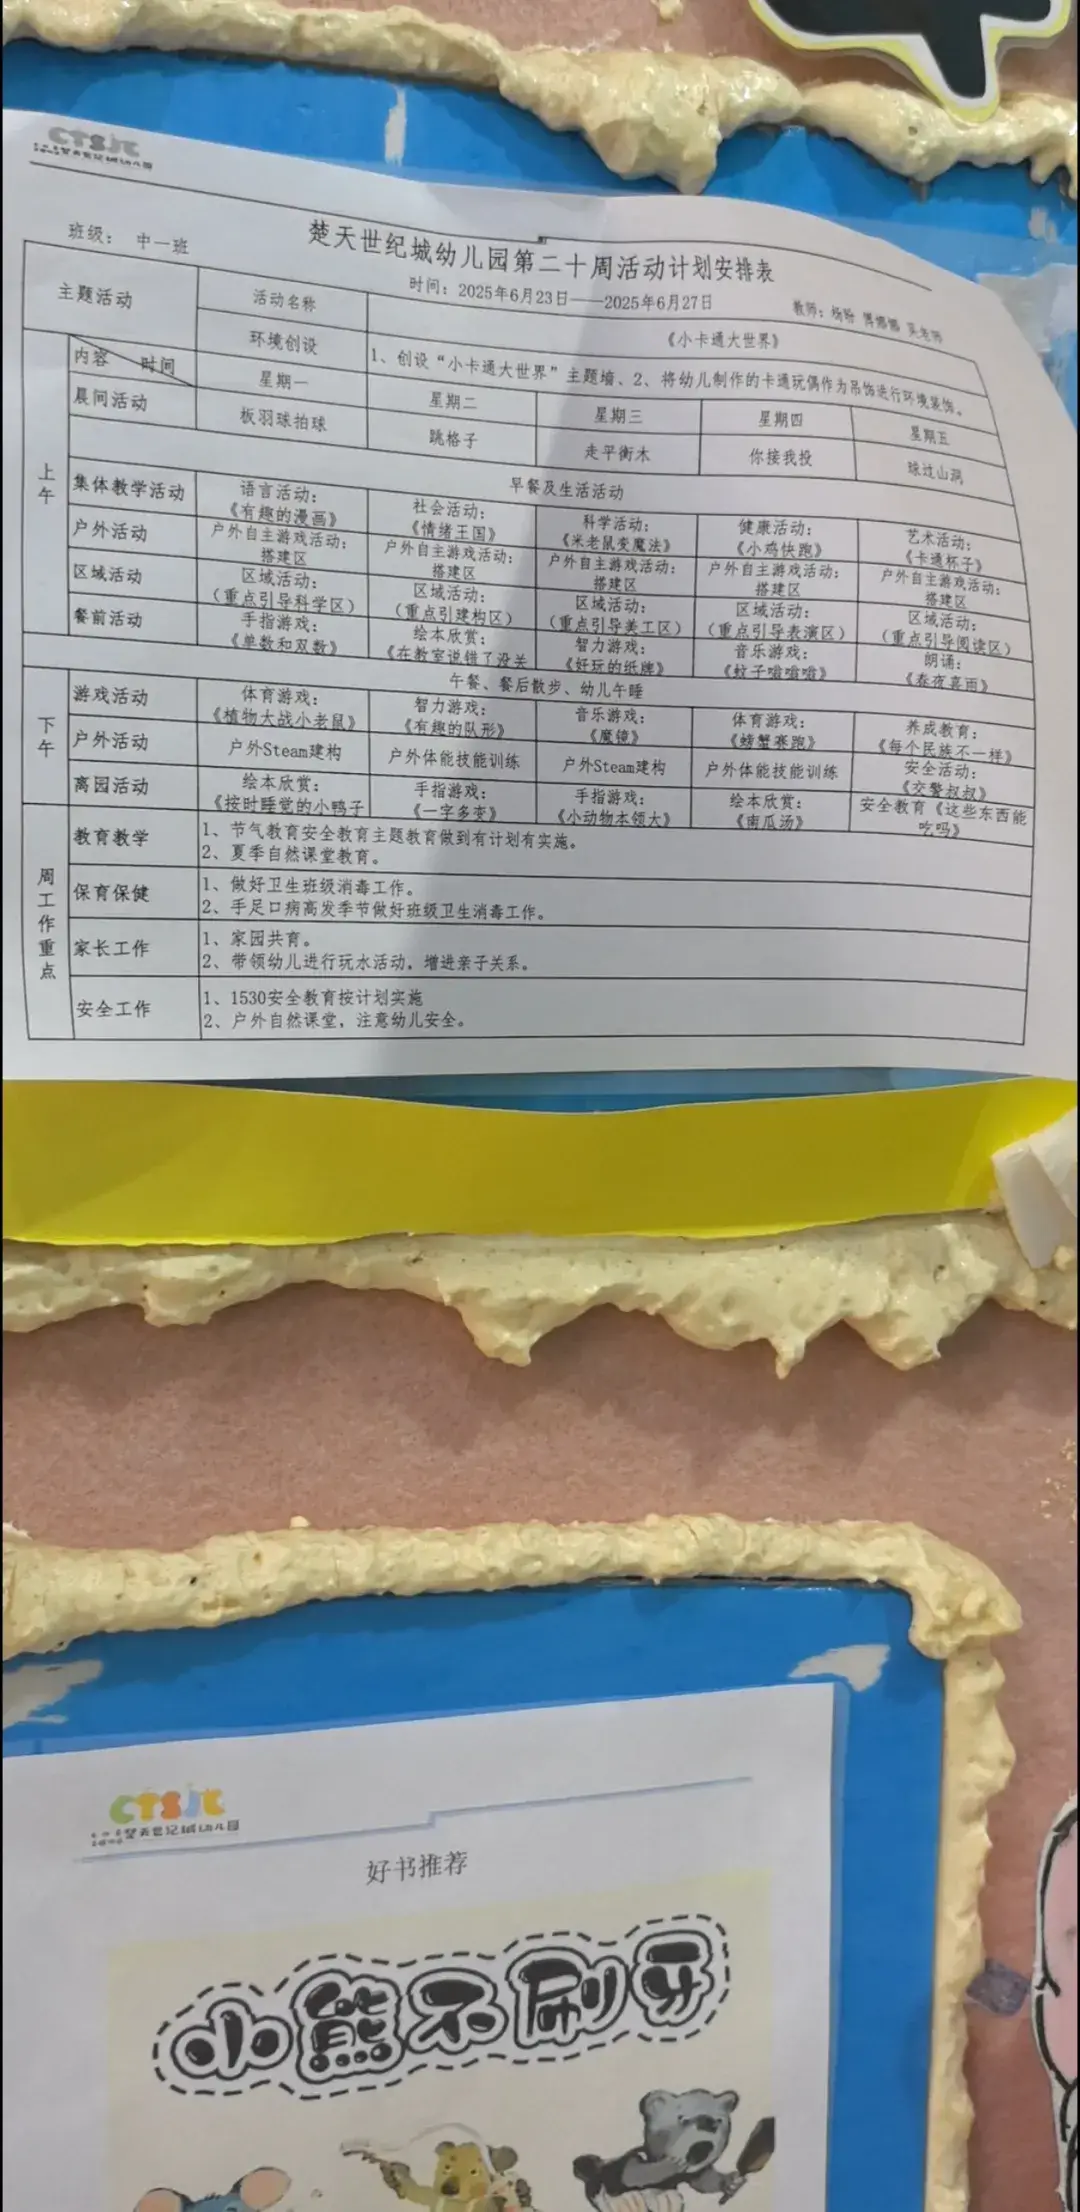 CTSJC
楚天世纪城幼儿园
楚天世纪城幼儿园第二十周活动计划安排表
班级： 中一班
时间：2025年6月23日——2025年6月27日
教师：杨盼
主题活动
活动名称
《小卡通大世界》
环境创设
1、创设“小卡通大世界”主题墙、2、将幼儿制作的卡通玩偶作为吊饰进行环境装饰。
内容 时间
星期一
星期二
星期三
星期四
星期五
上午
晨间活动
板羽球拍球
跳格子
走平衡木
你接我投
球过山洞
早餐及生活活动
集体教学活动
语言活动：
《有趣的漫画》
社会活动：
《情绪王国》
科学活动：
《米老鼠变魔法》
健康活动：
《小鸡快跑》
艺术活动：
《卡通杯子》
户外活动
户外自主游戏活动：
搭建区
户外自主游戏活动：
搭建区
户外自主游戏活动：
搭建区
户外自主游戏活动：
搭建区
户外自主游戏活动：
搭建区
区域活动
区域活动：
（重点引导科学区）
区域活动：
（重点引建构区）
区域活动：
（重点引导美工区）
区域活动：
（重点引导表演区）
区域活动：
（重点引导阅读区）
餐前活动
手指游戏：
《单数和双数》
绘本欣赏：
《在教室说错了没关
智力游戏：
《好玩的纸牌》
音乐游戏：
《蚊子嗡嗡嗡》
朗诵：
《春夜喜雨》
午餐、餐后散步、幼儿午睡
下午
游戏活动
体育游戏：
《植物大战小老鼠》
智力游戏：
《有趣的队形》
音乐游戏：
《魔镜》
体育游戏：
《螃蟹赛跑》
养成教育：
《每个民族不一样》
户外活动
户外Steam建构
户外体能技能训练
户外Steam建构
户外体能技能训练
安全活动：
《交警叔叔》
离园活动
绘本欣赏：
《按时睡觉的小鸭子
手指游戏：
《一字多变》
手指游戏：
《小动物本领大》
绘本欣赏：
《南瓜汤》
安全教育《这些东西能
吃吗》
周工作重点
教育教学
1、节气教育安全教育主题教育做到有计划有实施。
2、夏季自然课堂教育。
保育保健
1、做好卫生班级消毒工作。
2、手足口病高发季节做好班级卫生消毒工作。
家长工作
1、家园共育。
2、带领幼儿进行玩水活动，增进亲子关系。
安全工作
1、1530安全教育按计划实施
2、户外自然课堂，注意幼儿安全。
CTSJC
楚天世纪城幼儿园
好书推荐
小熊不刷牙